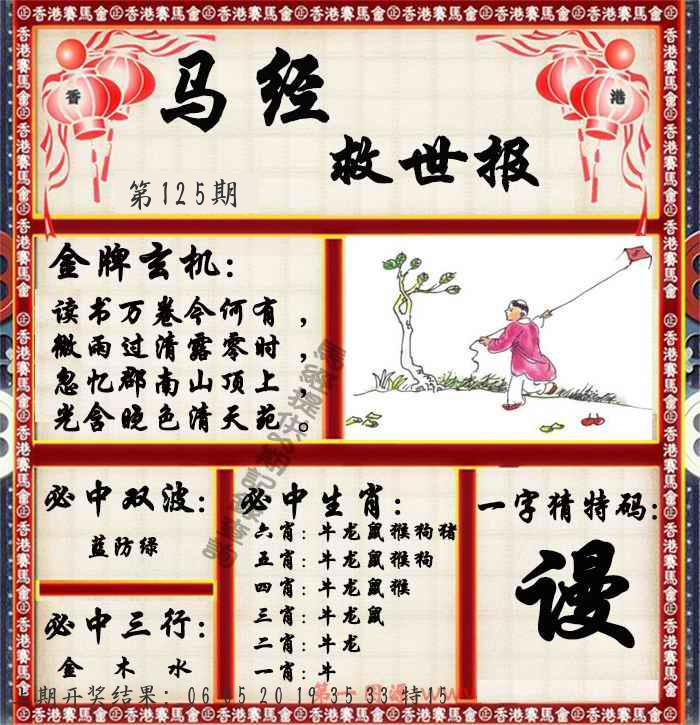 香港賽馬會 香港賽馬會 香港賽馬會 香港賽馬會 香港賽馬會 香港賽馬會 香港賽馬會
香
港
马经
救世报
第125期
金牌玄机：
读书万卷今何有，
微雨过清露零时，
忽忆郡南山顶上，
光含晚色清天苑。
必中双波：
蓝防绿
必中三行：
金 木 水
必中生肖：
六肖：牛龙鼠猴狗猪
五肖：牛龙鼠猴狗
四肖：牛龙鼠猴
三肖：牛龙鼠
二肖：牛龙
一肖：牛
一字猜特码：
谩
期开奖结果：06 05 20 19 35 33 特15